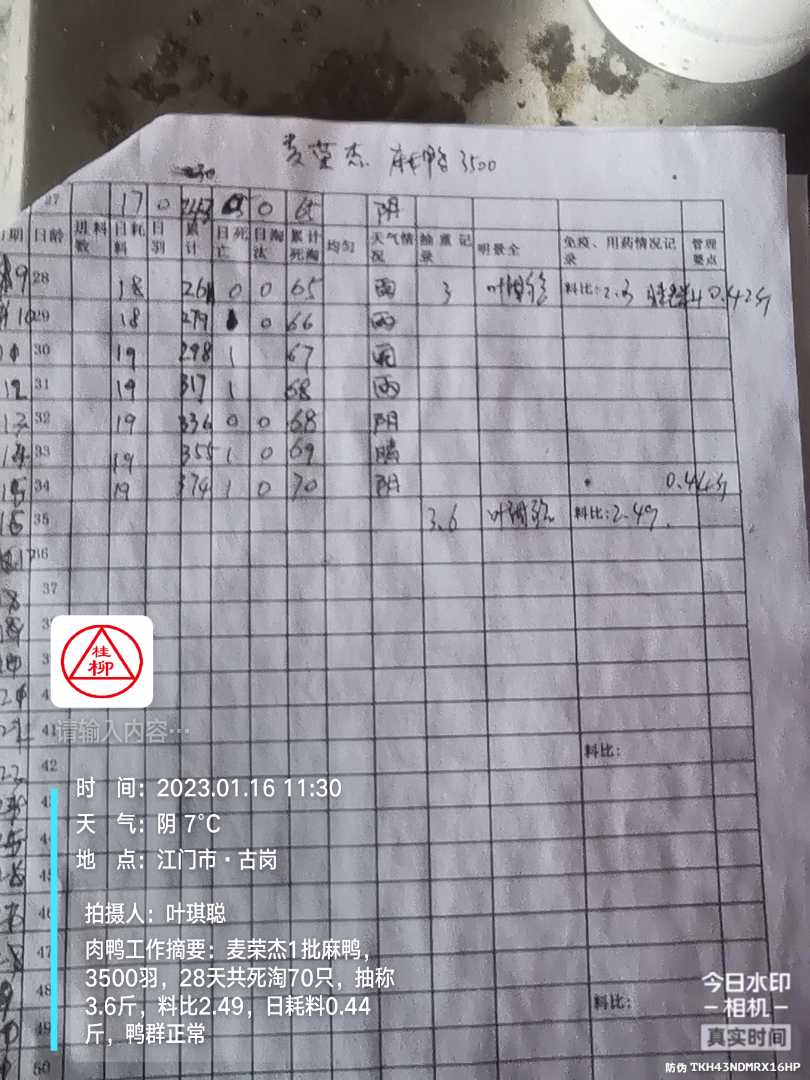 麦荣杰 麻鸭 3500
27 17 0 243 0 65 阴
日期 日龄 进料数 日耗料 日别 累计 日死亡 日淘汰 累计死淘 均匀 天气情况 抽重记录 明景全 免疫、用药情况记录 管理要点
9 28 18 261 0 0 65 雨 3 料比:2.3 0.42斤
10 29 18 279 0 66 雨
30 19 298 1 67 雨
12 31 19 317 1 68 雨
13 32 19 336 0 0 68 阴
14 33 19 355 1 0 69 晴
15 34 19 374 1 0 70 阴 0.44斤
16 35 3.6 料比:2.49
17 36
37
桂柳
请输入内容…
41 料比:
42
时 间:2023.01.16 11:30
天 气:阴 7℃
地 点:江门市·古岗
拍摄人:叶琪聪
肉鸭工作摘要:麦荣杰1批麻鸭,
3500羽,28天共死淘70只,抽称
3.6斤,料比2.49,日耗料0.44
斤,鸭群正常
46
47
48 料比:
49
50
今日水印
相机
真实时间
防伪 TKH43NDMRX16HP